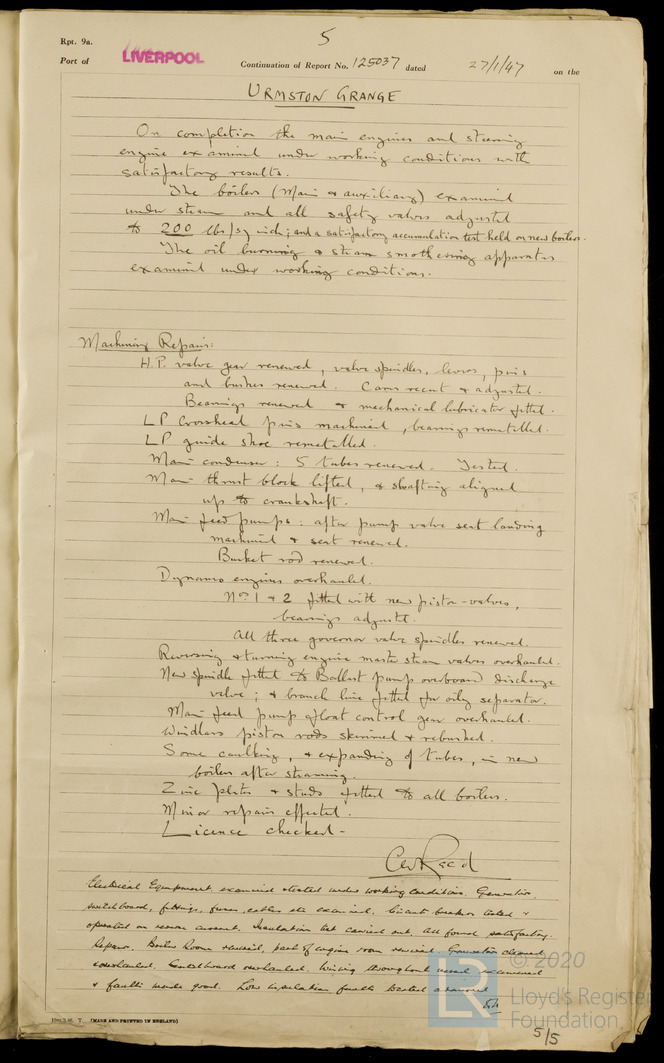 5
Rpt. 9a.
Port of LIVERPOOL Continuation of Report No. 125037 dated 27/1/47 on the
URMSTON GRANGE
On completion the main engines and steering
engine examined under working conditions with
satisfactory results.
The boilers (Main & auxiliary) examined
under steam and all safety valves adjusted
to 200 lbs/sq inch; and a satisfactory accumulation test held on new boilers.
The oil burning & steam smothering apparatus
examined under working conditions.
Machinery Repairs:
H.P. valve gear renewed, valve spindles, levers, pins
and bushes renewed. Cams recut & adjusted.
Bearings renewed & mechanical lubricator fitted.
LP Crosshead pins machined, bearings remetalled.
LP guide shoe remetalled.
Main condenser: 5 tubes renewed. Tested.
Main thrust block lifted, & shafting aligned
up to crankshaft.
Main feed pumps: after pump valve seat landing
machined & seat renewed.
Bucket rod renewed.
Dynamo engines overhauled.
No. 1 & 2 fitted with new piston-valves,
bearings adjusted.
All three governor valve spindles renewed.
Reversing & turning engine master steam valves overhauled.
New spindle fitted to Ballast pump overboard discharge
valve; & branch line fitted for oily separator.
Main feed pump float control gear overhauled.
Windlass piston rods skimmed & rebushed.
Some caulking, & expanding of tubes, in new
boilers after steaming.
Zinc plates & studs fitted to all boilers.
Minor repairs effected.
Licence checked -
Reed
Electrical Equipment examined & tested under working conditions. Generators,
switchboard, fittings, fuses, cables etc examined. Circuit breakers tested &
operated on reverse current. Insulation test carried out. All found satisfactory.
Repairs. Boiler Room rewired, part of engine room rewired. Generators cleaned
overhauled. Switchboard overhauled. Wiring throughout vessel examined
& faults made good. Low insulation faults located &
(MADE AND PRINTED IN ENGLAND)
5/5
LR
© 2020
Lloyd's Register
Foundation